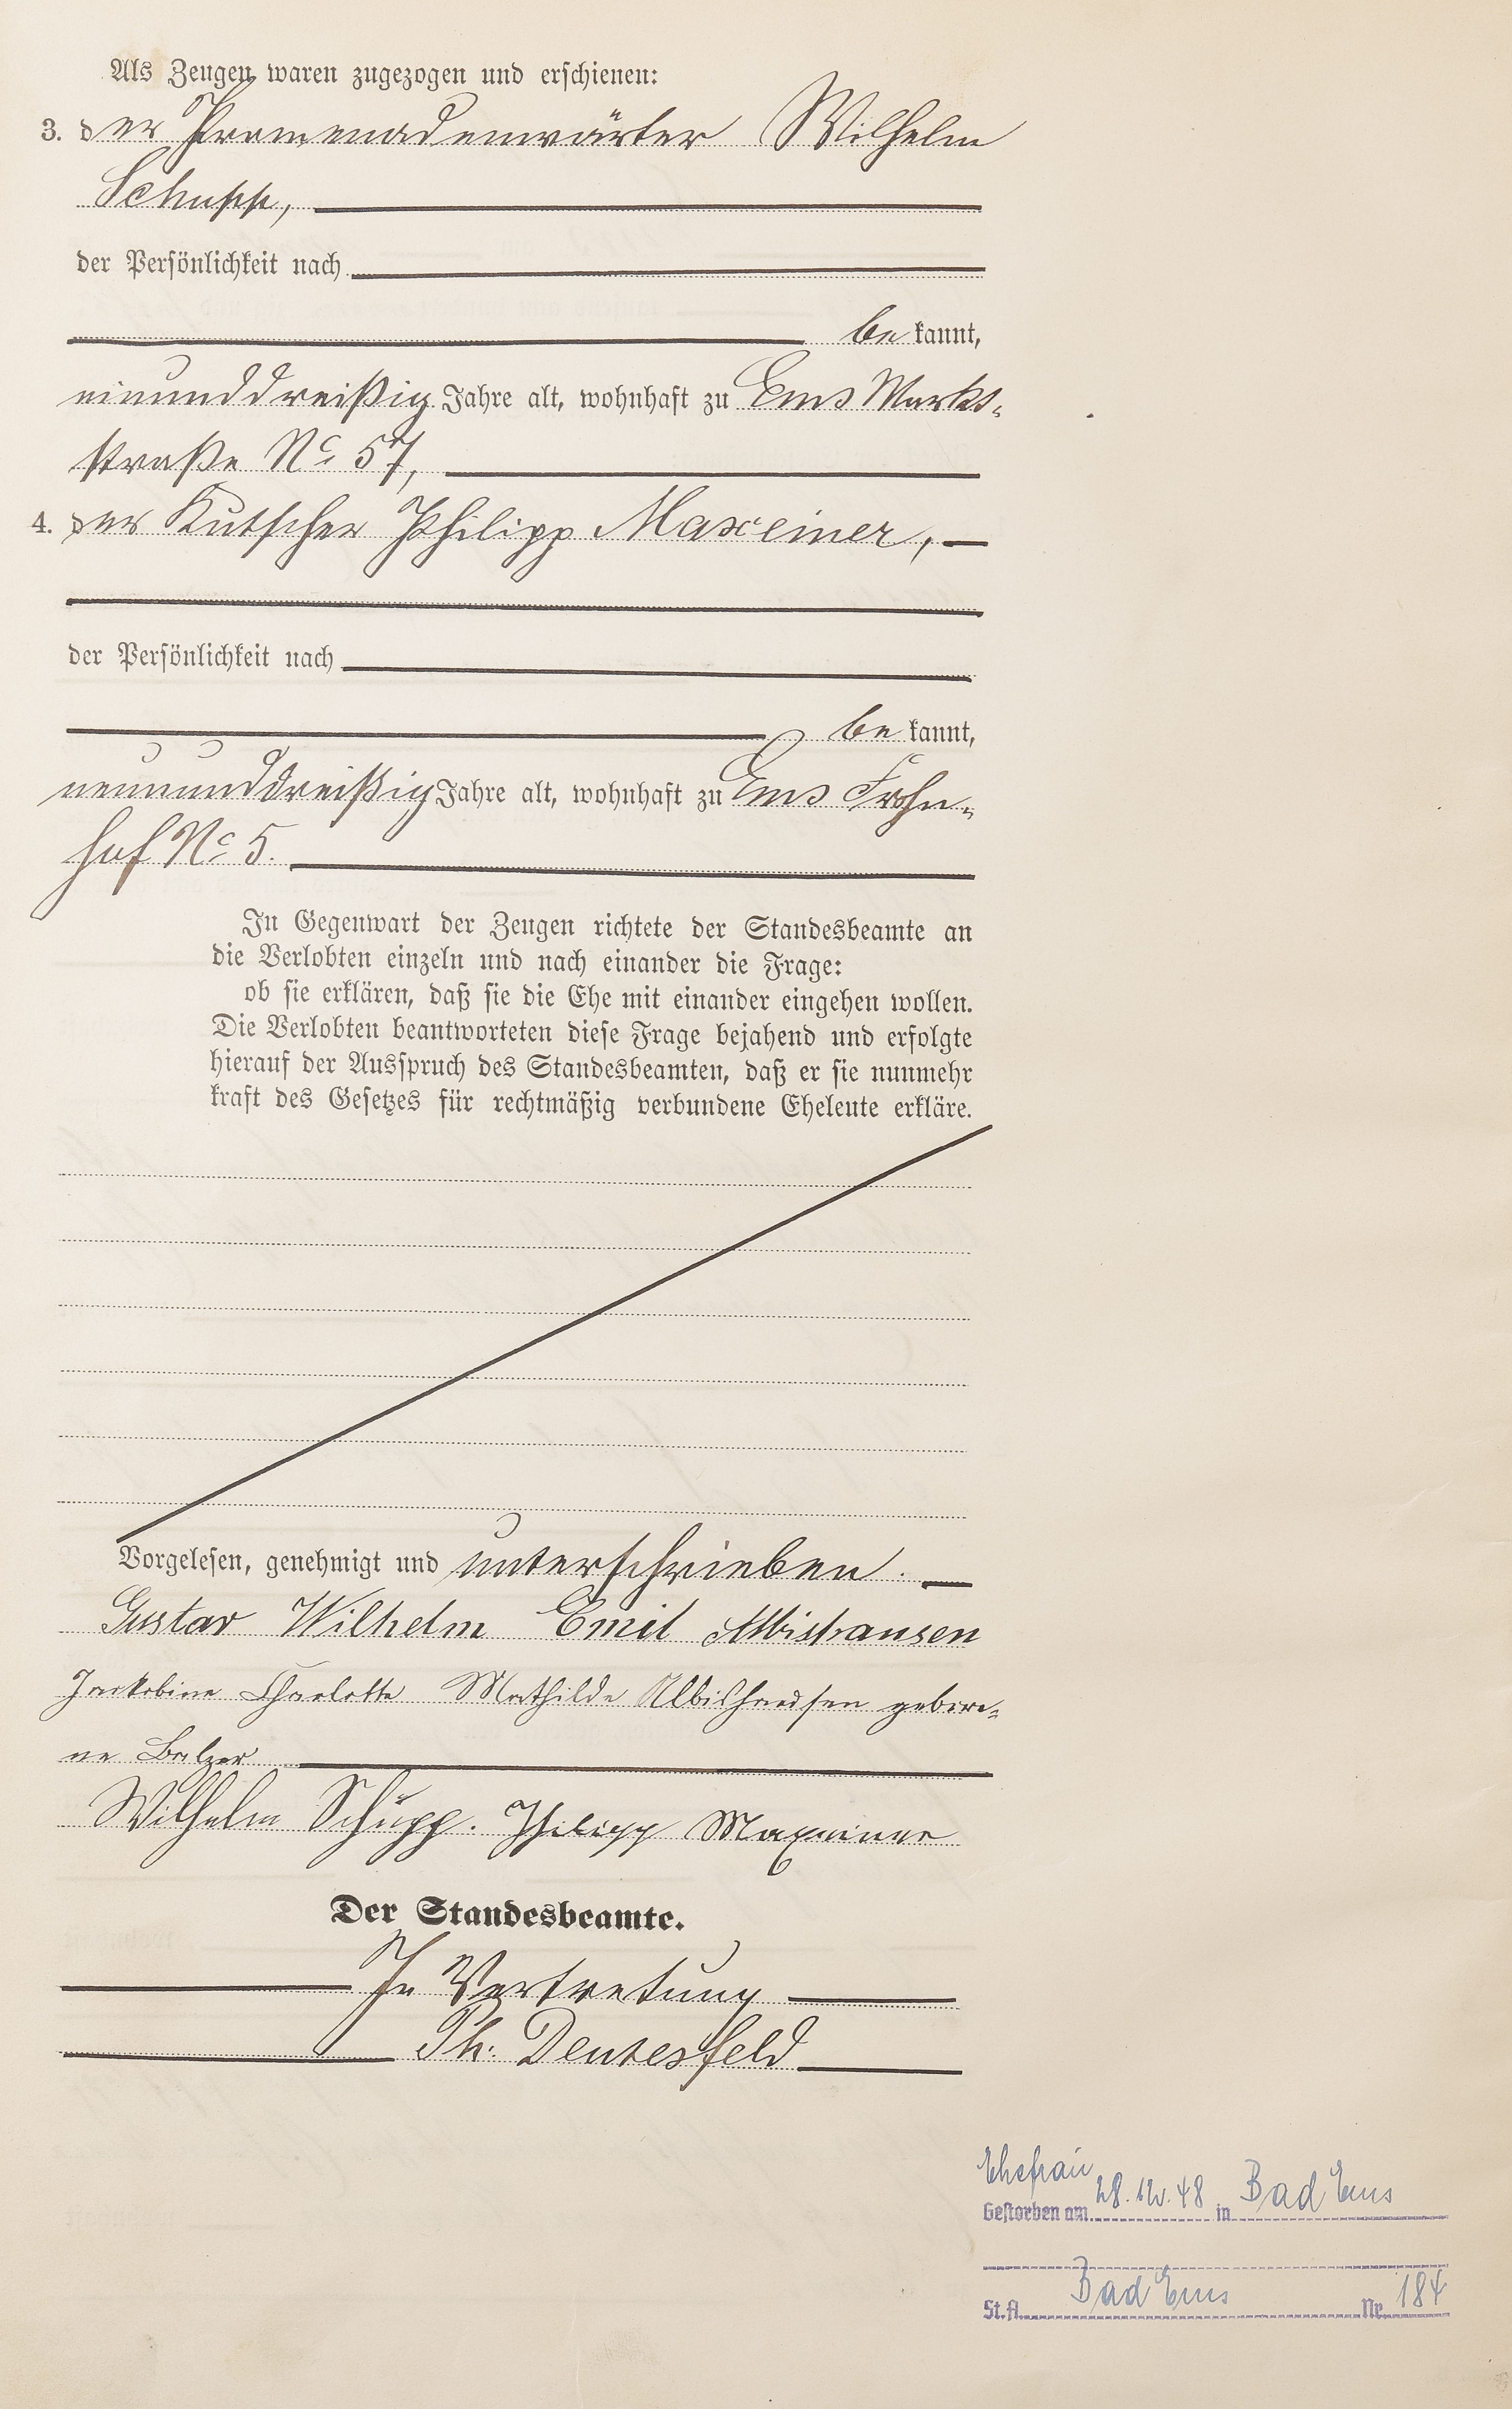 Als Zeugen waren zugezogen und erschienen:
3. der Promenadenwärter Wilhelm
Schupp,
der Persönlichkeit nach
be kannt,
einunddreißig Jahre alt, wohnhaft zu Ems Markt-
straße No 57,
4. der Kutscher Philipp Maxeiner,
der Persönlichkeit nach
be kannt,
neununddreißig Jahre alt, wohnhaft zu Ems Frohn-
hof No 5.
In Gegenwart der Zeugen richtete der Standesbeamte an
die Verlobten einzeln und nach einander die Frage:
ob sie erklären, daß sie die Ehe mit einander eingehen wollen.
Die Verlobten beantworteten diese Frage bejahend und erfolgte
hierauf der Ausspruch des Standesbeamten, daß er sie nunmehr
kraft des Gesetzes für rechtmäßig verbundene Eheleute erkläre.
Vorgelesen, genehmigt und unterschrieben.
Gustav Wilhelm Emil Albishausen
Jackobine Charlotte Mathilde Albishausen gebore-
ne Balzer
Wilhelm Schupp. Philipp Maxeiner
Der Standesbeamte.
In Vertretung
Ph. Deutesfeld
Ehefrau
Gestorben am 28.12.48 in Bad Ems
St.A. Bad Ems Nr. 184